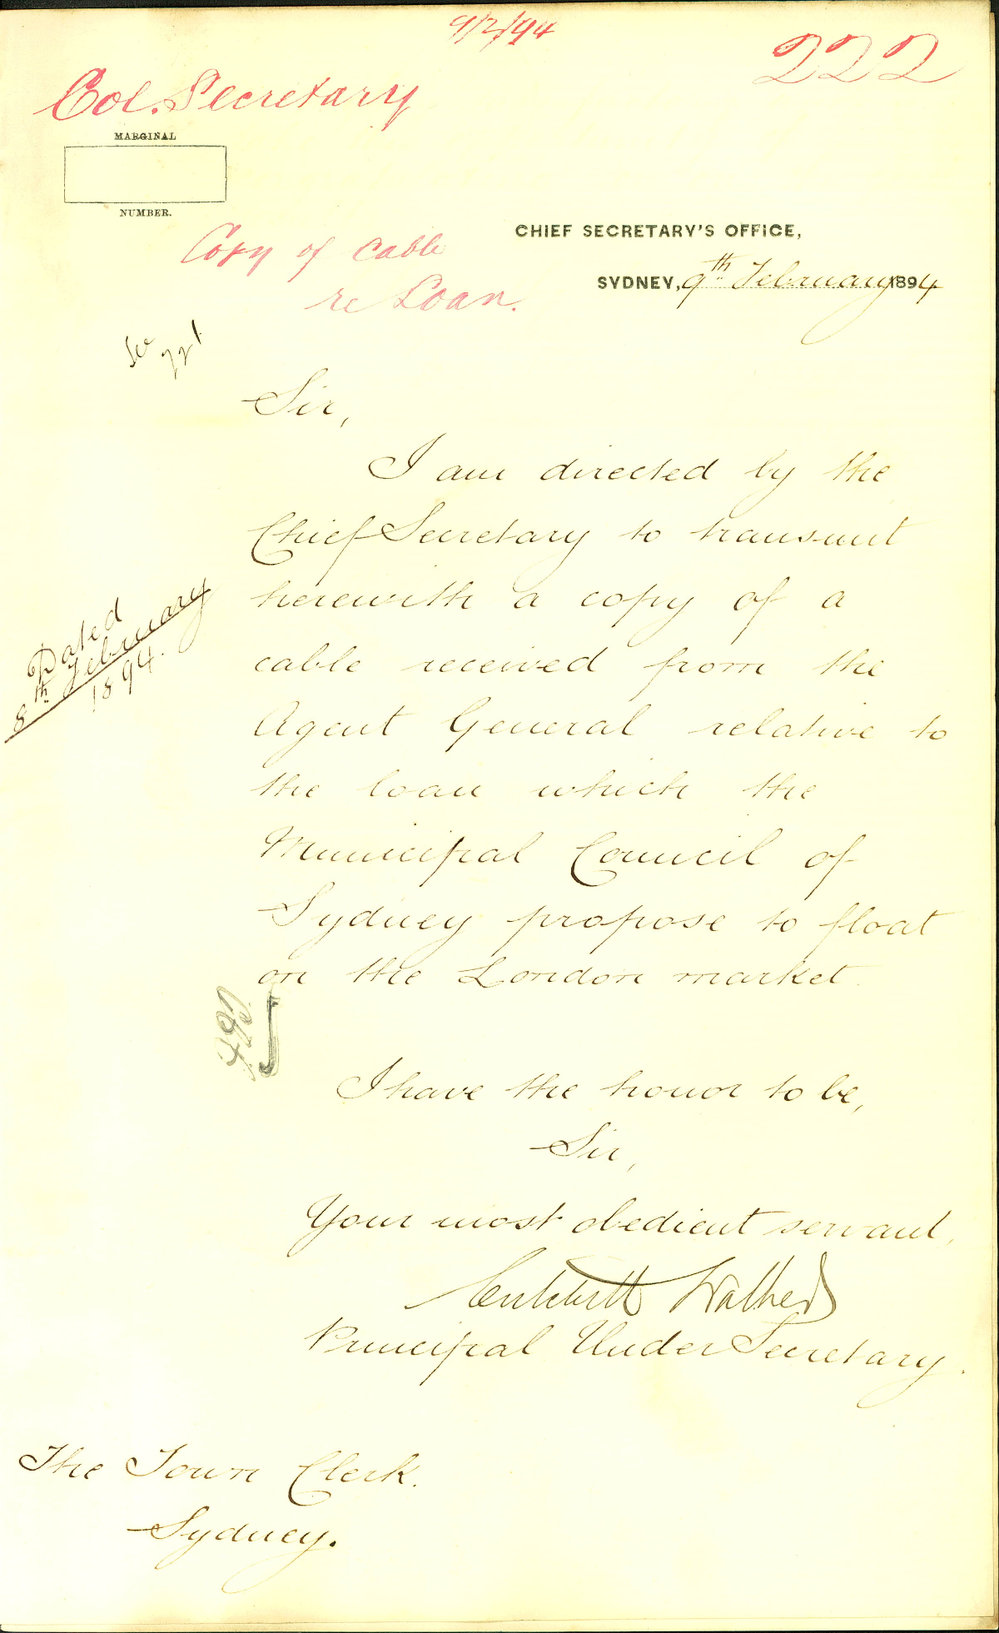 9/2/94
222
Col. Secretary
MARGINAL
NUMBER.
Copy of cable
re Loan.
CHIEF SECRETARY'S OFFICE,
SYDNEY, 9th February 1894
See
221
Sir,
I am directed by the
Chief Secretary to transmit
herewith a copy of a
cable received from the
Agent General relative to
the loan which the
Municipal Council of
Sydney propose to float
on the London market.
Dated
8th February
1894.
I have the honor to be,
Sir,
Your most obedient servant,
Critchett Walker
Principal Under Secretary.
The Town Clerk.
Sydney.